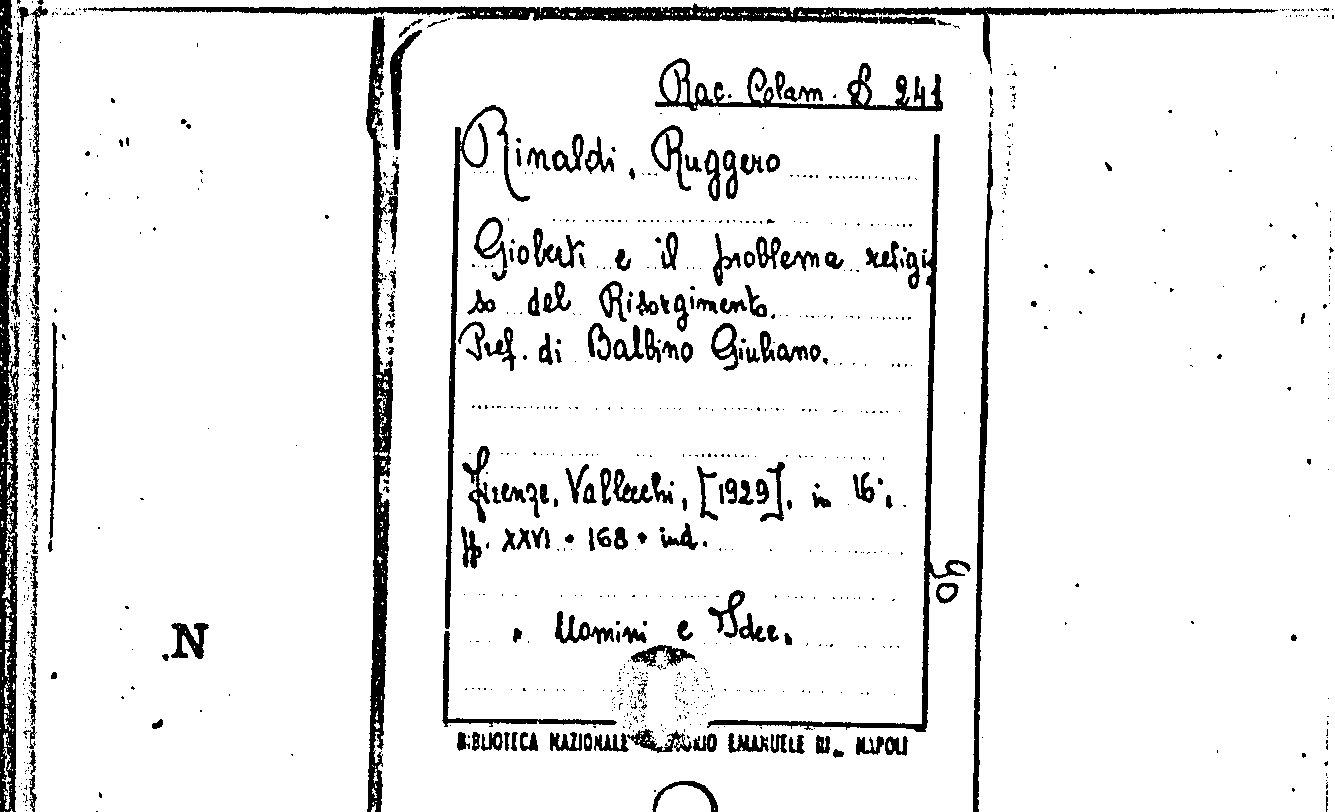 Rac. Colam. B 241
Rinaldi, Ruggero
Gioberti e il problema religio
so del Risorgimento.
Pref. di Balbino Giuliano.
Firenze, Vallecchi, [1929], in 16°,
pp. XXVI + 168 + ind.
. Uomini e Idee.
90
N
BIBLIOTECA NAZIONALE EMANUELE III - NAPOLI